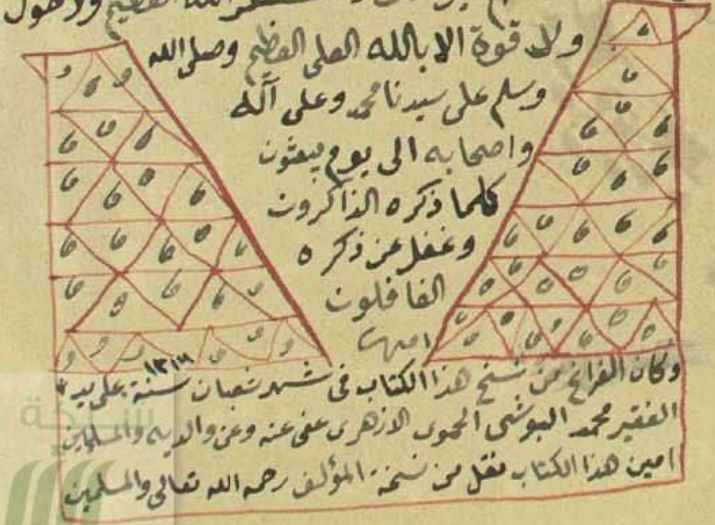 الله العظيم ولا حول
ولا قوة الا بالله العلى العظيم وصلى الله
وسلم على سيدنا محمد وعلى آله
واصحابه الى يوم يبعثون
كلما ذكره الذاكرون
وغفل عن ذكره
الغافلون
امين
وكان الفراغ من نسخ هذا الكتاب فى شهر شعبان سنة ١٣١٣ على يد
الفقير محمد البوشى الحموى الازهرى عفى عنه وعن والديه والمسلمين
امين هذا الكتاب نقل من نسخة المؤلف رحمه الله تعالى والمسلمين